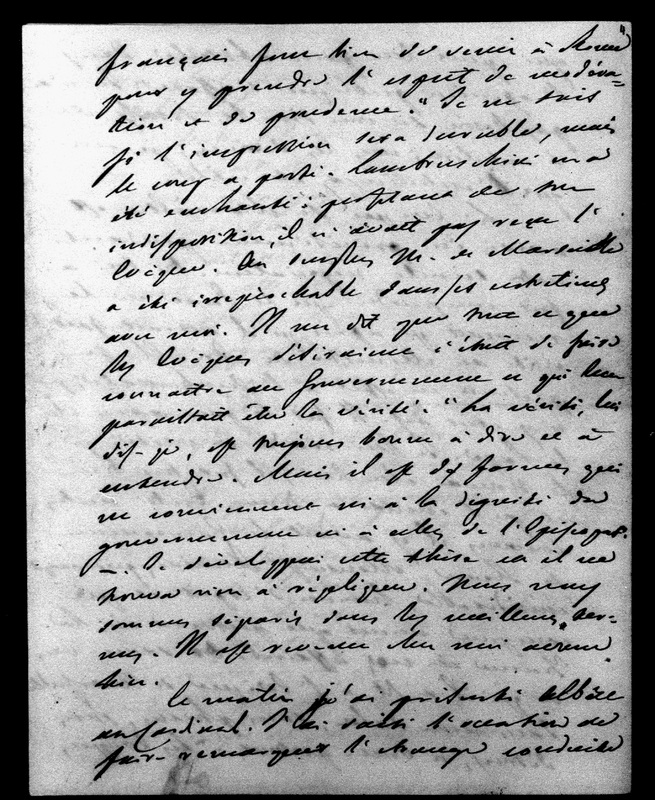 français font bien de venir à Rome"
pour y prendre l'esprit de modéra-
tion et de prudence." Je ne sais
si l'impression sera durable, mais
le coup a porté. Lambruschini m'a
été enchanté: profitant de son
indisposition, il n'avait pas reçu l'
Evêque. Au surplus M. de Marseille
a été irréprochable dans ses entretiens
avec moi. Il me dit que tout ce que
les Evêques désiraient c'était de faire
connaître au Gouvernement ce qui leur
paraissait être la vérité. "La vérité, lui
dis-je, est toujours bonne à dire et à
entendre. Mais il est des formes qui
ne conviennent ni à la dignité du
gouvernement ni à celle de l'Episcopat.
— Je développai cette thèse et il ne
trouva rien à répliquer. Nous nous
sommes séparés dans les meilleurs ter-
mes. Il est revenu chez moi avant
hier.
Ce matin j'ai présenté Albéric
au Cardinal. J'ai saisi l'occasion de
faire remarquer l'étrange conduite